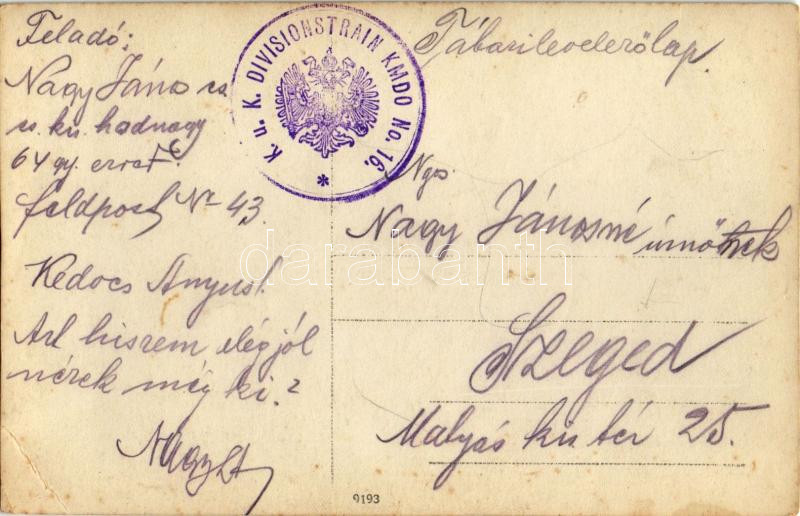 Feladó:
Nagy János cs
cs. kir. hadnagy
64 gy. ezred
feldpost No 43
Kedves Anyus!
Azt hiszem elég jól
nézek még ki?
K. u. K. DIVISIONSTRAIN KMDO No. 16.
*
Tábori levelezőlap
Ngs.
Nagy Jánosné úrnőnek
Szeged
Mátyás kir tér 25.
9193
darabanth